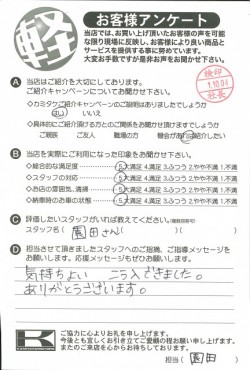 軽
お客様アンケート
当店では、お買い上げ頂いたお客様の声を可能
な限り現場に反映し、お客様により良い商品と
サービスを提供する事に努めています。
大変お手数ですが是非お声をお聞かせ下さい。
検印
社長
A 当店はご紹介を大切にしております。
ご紹介キャンペーンについてお聞かせ下さい。
◇カミタケご紹介キャンペーンのご説明はありましたでしょうか
はい いいえ
◇具体的にご紹介頂ける方とのご関係をお聞かせ頂けますでしょうか
ご親民 ご友人 職場の方 機会があれば紹介したい
B 当店を実際にご利用になった印象をお聞かせ下さい。
◇総合的な満足度 5.大満足 4.満足 3.ふつう 2.やや不満 1.不満
◇スタッフの対応 5.大満足 4.満足 3.ふつう 2.やや不満 1.不満
◇お店の雰囲気、清掃 5.大満足 4.満足 3.ふつう 2.やや不満 1.不満
◇納車時のお車の状態 5.大満足 4.満足 3.ふつう 2.やや不満 1.不満
C 評価したいスタッフがいれば教えてください。
スタッフ名( 園田さん )
D 担当させて頂きましたスタッフへのご指摘、ご指導メッセージを
お願いします。応援メッセージもぜひお願いします。
気持ちよい ご購入できました。
ありがとうございます。
K
ご協力に心よりお礼を申し上げます。
今後とも宜しくお引き立てご愛顧の程お願い申し上げます。
またのご来店を心からお待ちしております。
担当( 園田 )